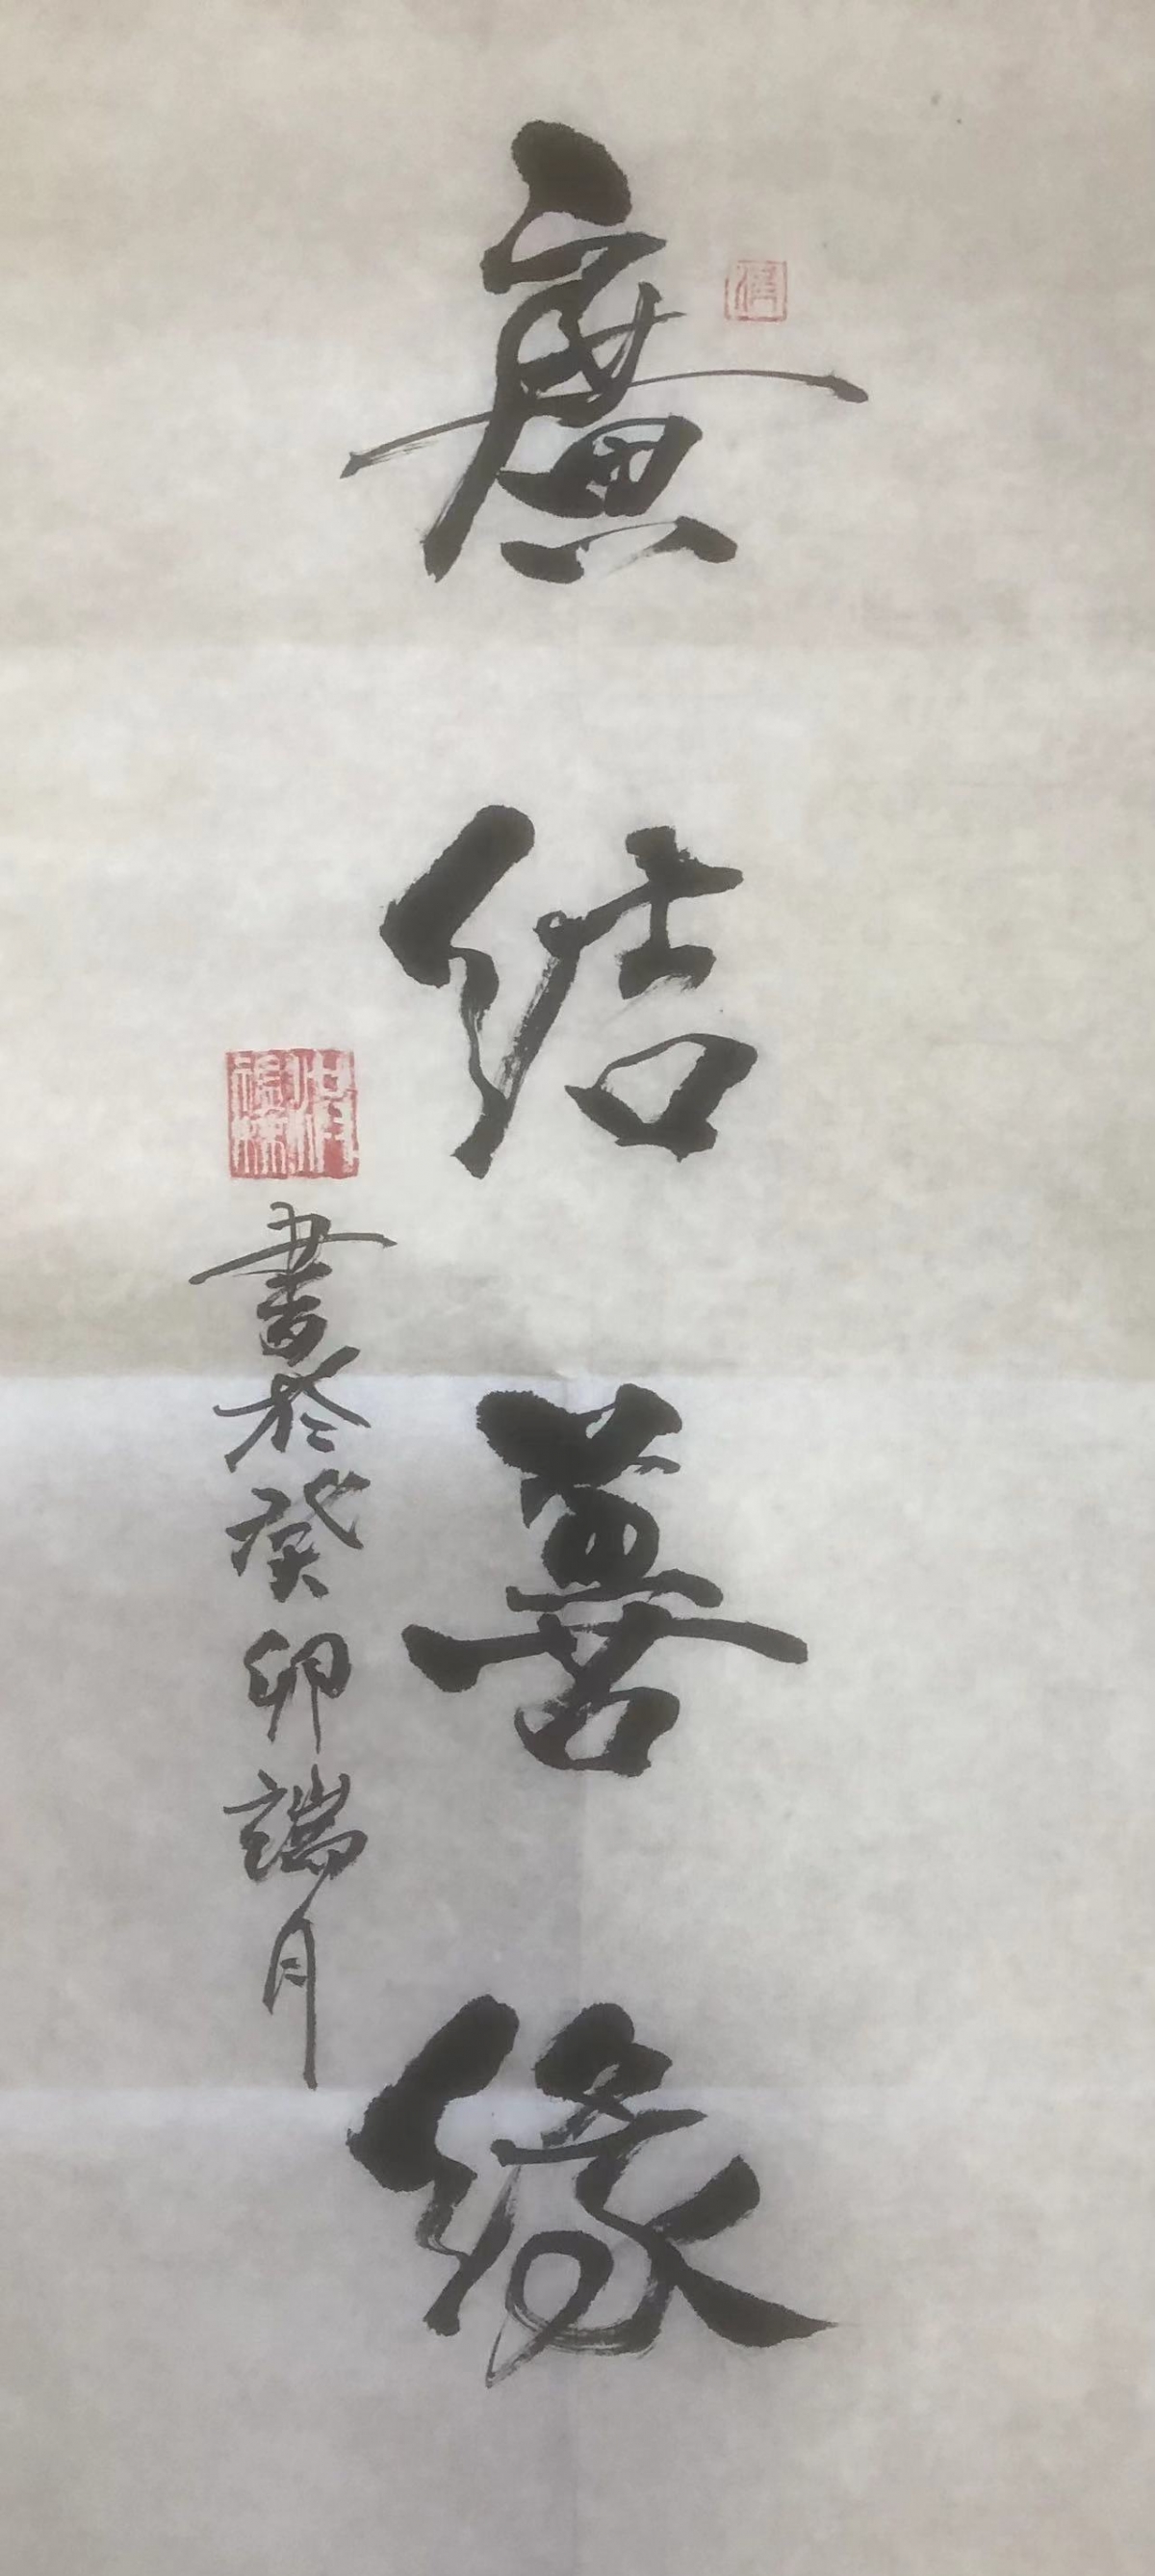 廣結善緣
書於癸卯端月